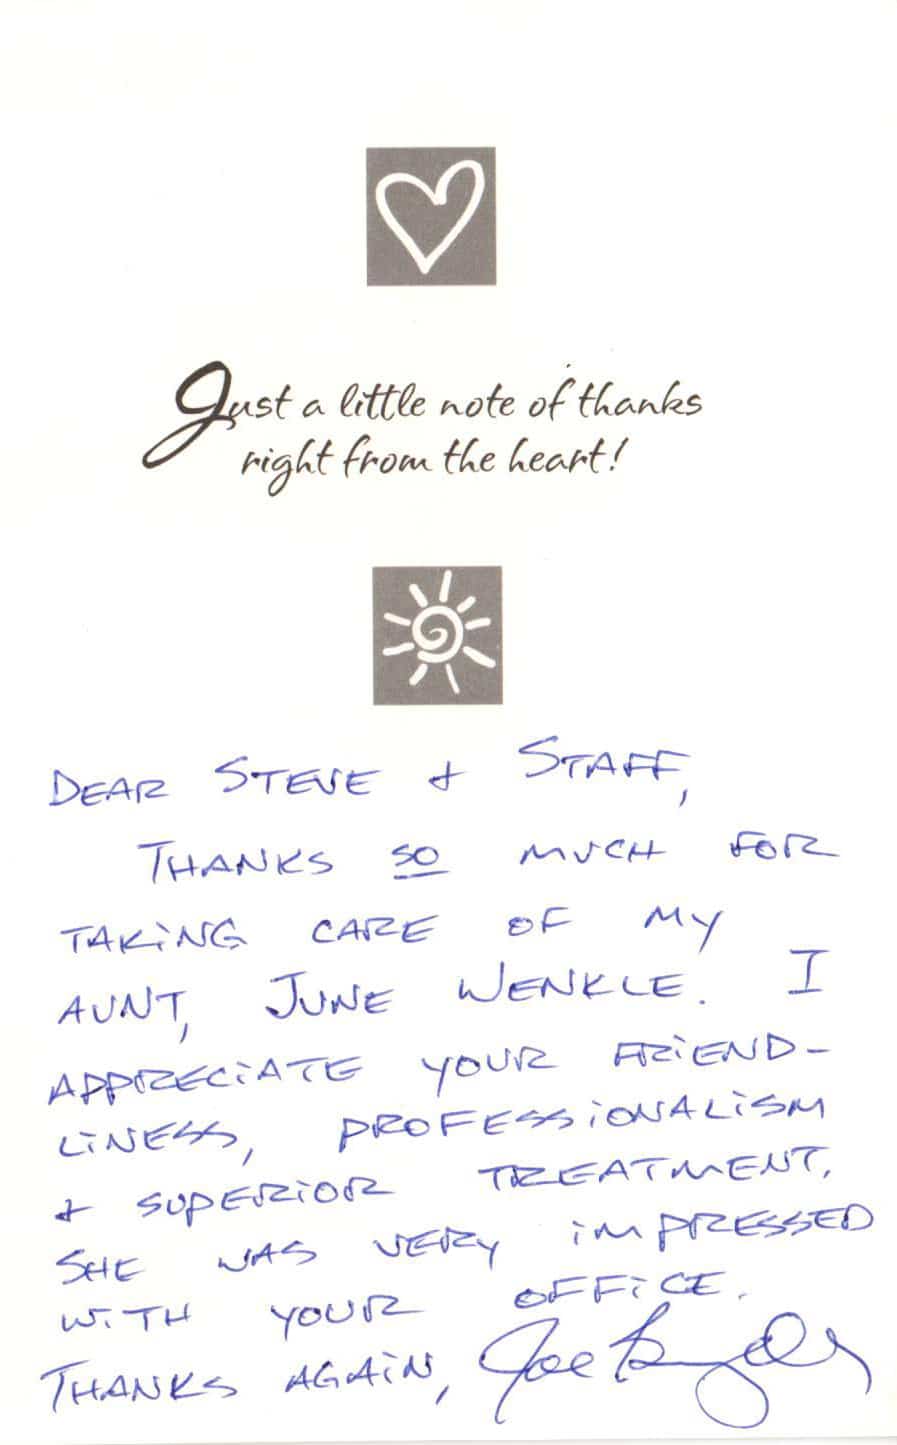 Just a little note of thanks
right from the heart!
DEAR STEVE + STAFF,
THANKS SO MUCH FOR
TAKING CARE OF MY
AUNT, JUNE WENKLE. I
APPRECIATE YOUR FRIEND-
LINESS, PROFESSIONALISM
+ SUPERIOR TREATMENT.
SHE WAS VERY IMPRESSED
WITH YOUR OFFICE.
THANKS AGAIN, Joe